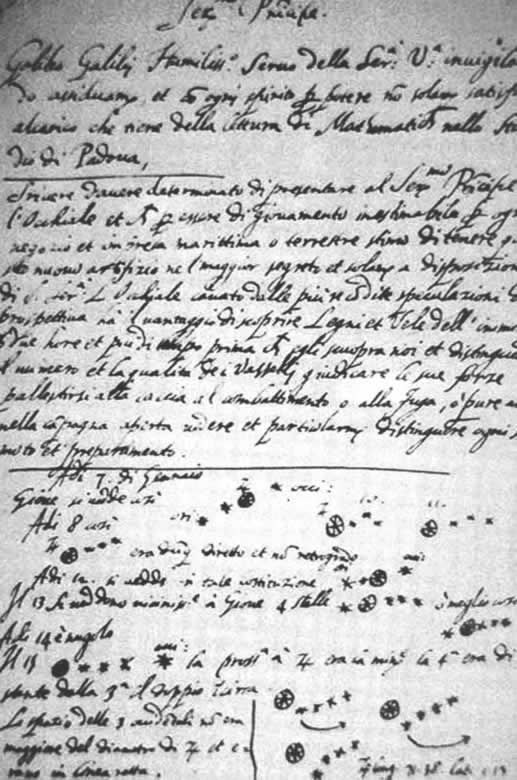 Ser.mo Principe.
Galileo Galilej Humiliss.o Servo della Ser.a V.a invigila
do assiduam.e, et co ogni spirito p potere no solam satisf
alcarico che tiene della lettura di Matematich nello Stu
dio di Padova,
Scrivere d'avere determinato di presentare al Ser.mo Principe
l'Occhiale et p essere di giovamento inestimabile p ogni
negozio et impresa marittima o terrestre stimo di tenere q
sto nuovo artifizio nel maggior segreto et solam a disposizion
di S. Ser.a L'Occhiale cavato dalle più recodite speculazioni d
prospettiva ha il vantaggio di scoprire Legni et Vele dell' inim
due hore et più di tempo prima ch egli scuopra noi et distingue
il numero et la qualità de i Vasselli giudicare le sue forze
pallestirsi alla caccia al combattimento o alla fuga, o pure
nella capagna aperta vedere et particolarm distinguere ogni
moto et preparamento.
Adi 7. di Gennaio
Giove si vedde così
occi:
Adi 8 così
ori:
era diretto et no retrogrado
Adi 12. si vedde in tale costituzione
Il 13 si veddono a Giove 4 stelle
meglio così
Adi 14 è nugolo
Il 15
la pross.a à era la 4.a era di
stante dalla 3.a il doppio circa
Lo spazio delle 3 occidētali no era
maggiore del diametro di et e
rano in linea retta.